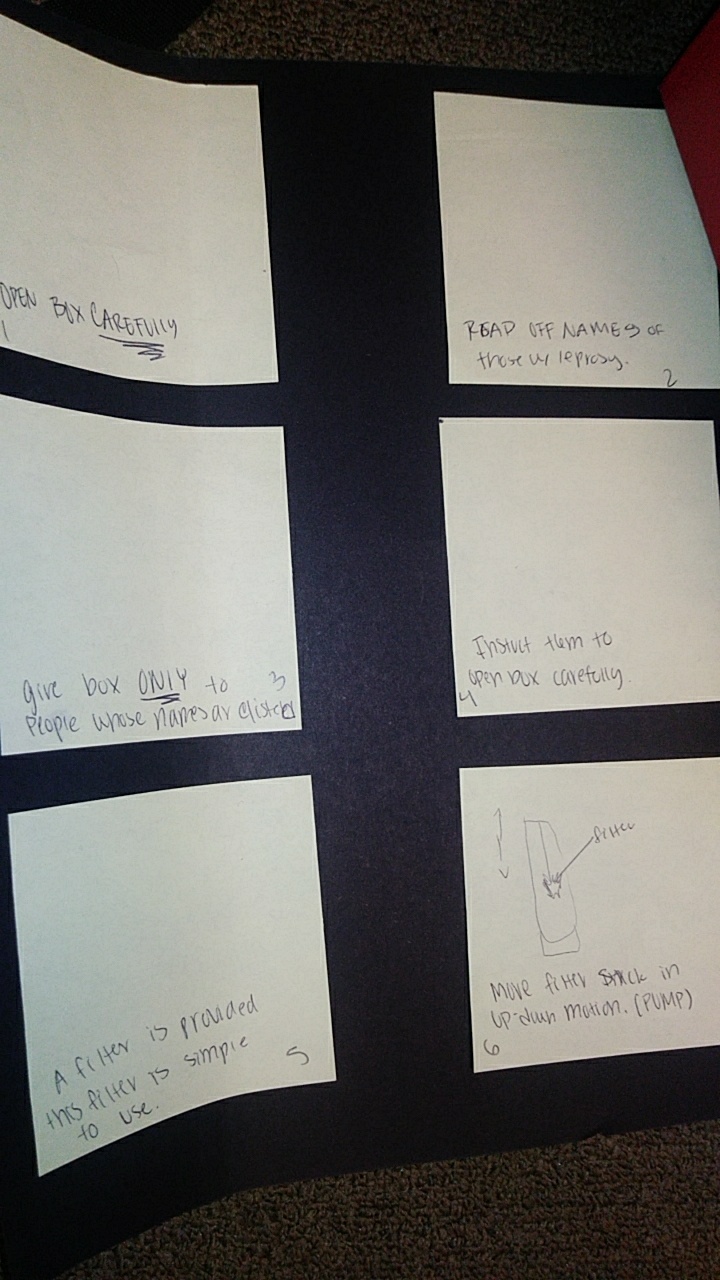 OPEN BOX CAREFULLY
1
READ OFF NAMES OF
those w/ leprosy.
2
Give box ONLY to 3
People whose names ar
Instuct them to
open box carefully.
4
A filter is provided
this filter is simple
to use.
5
filter
Move filter in
up-down motion. (PUMP)
6